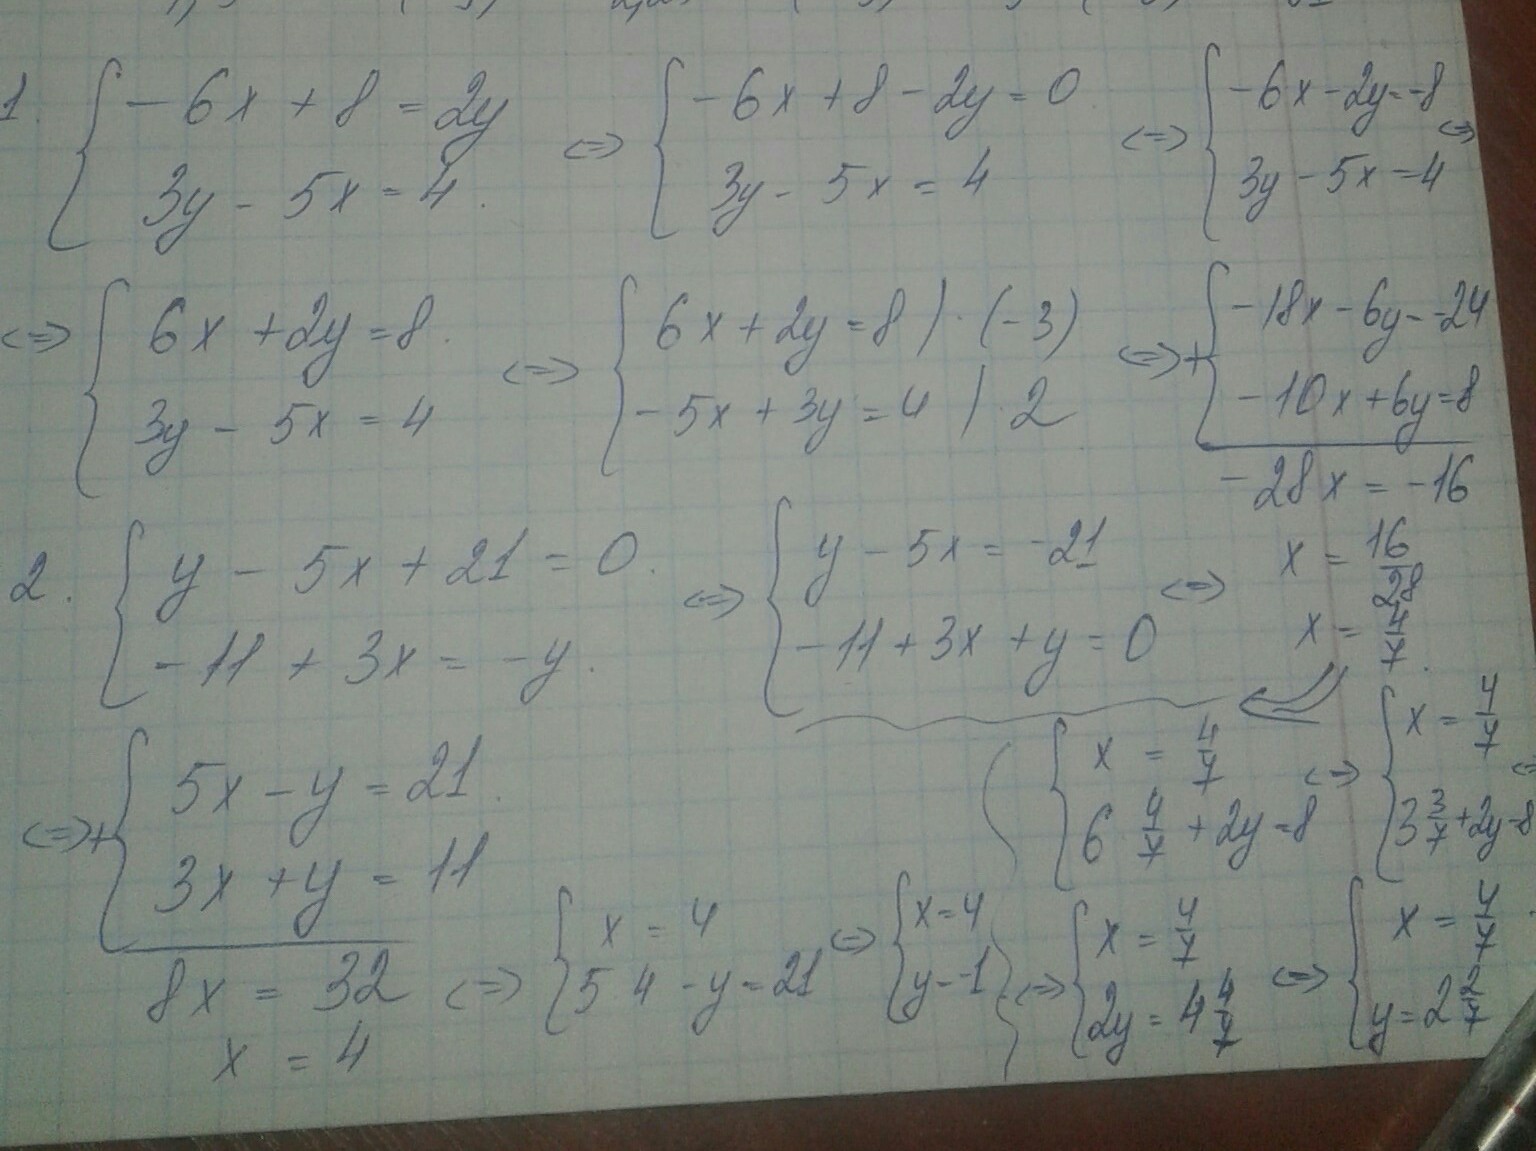 1. { -6x + 8 = 2y
3y - 5x = 4.
<=> { -6x + 8 - 2y = 0
3y - 5x = 4
<=> { -6x - 2y = -8
3y - 5x = 4 <=>
<=> { 6x + 2y = 8.
3y - 5x = 4
<=> { 6x + 2y = 8 | · (-3)
-5x + 3y = 4 | · 2
<=> + { -18x - 6y = -24
-10x + 6y = 8
-28x = -16
x = 16/28
x = 4/7.
{ x = 4/7
6 · 4/7 + 2y = 8
<=> { x = 4/7
3 3/7 + 2y = 8 <=>
<=> { x = 4/7
2y = 4 4/7
<=> { x = 4/7.
y = 2 2/7
2. { y - 5x + 21 = 0.
-11 + 3x = -y.
<=> { y - 5x = -21
-11 + 3x + y = 0
<=>
<=> + { 5x - y = 21.
3x + y = 11
8x = 32
x = 4
<=> { x = 4
5 4 - y = 21
<=> { x = 4
y = -1